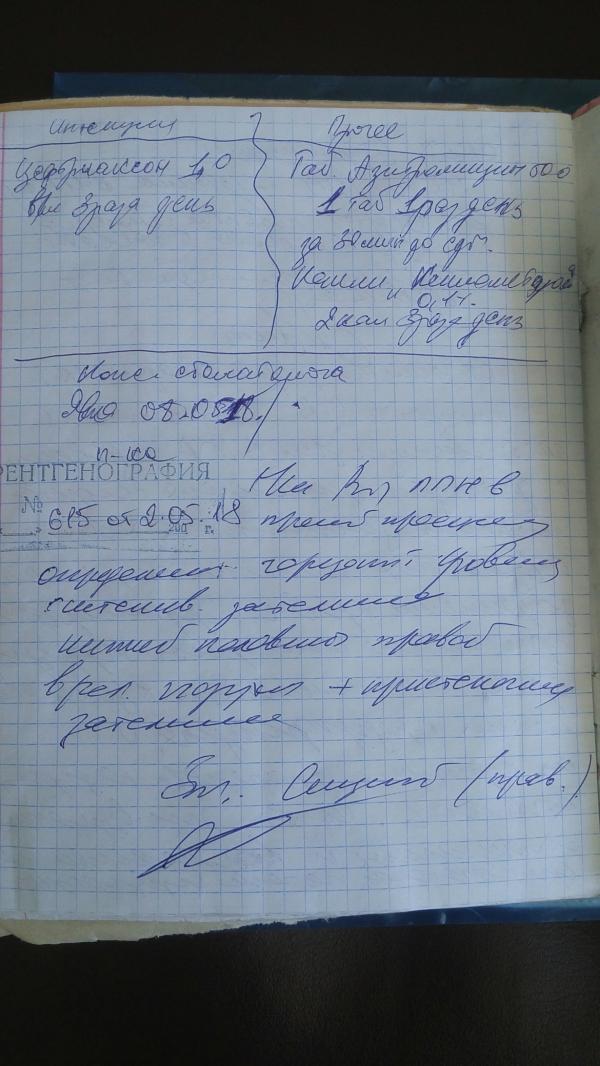 Инъекции
Прочее
Цефтриаксон 1,0
в/м 3 раза день
Таб. Азитромицин 500
1 таб 1 раз день
за 30 мин до еды.
Капли и Ксилометазол
0,1%.
2 кап 3 раза день
Конс. стоматолога
Явка 08.05.18.
п-ка
РЕНТГЕНОГРАФИЯ
№ 615 от 2.05.18 г.
На Rn ППН в
прямой проекции
определяет. горизонт. уровень
интенсив. затемнения
нижней половины правой
+ пристеночные
затемнения
Зп. (прав.)